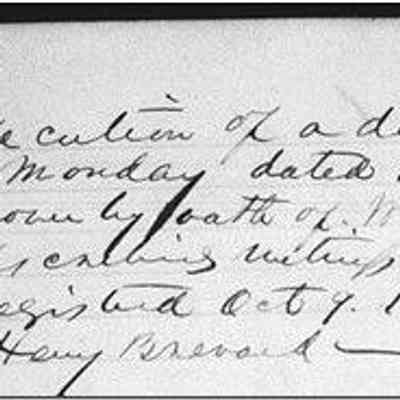 ecution of a de
Monday dated
oven by oath of. W
scribing witness
egistered Oct 9. 1
Henry Brevard